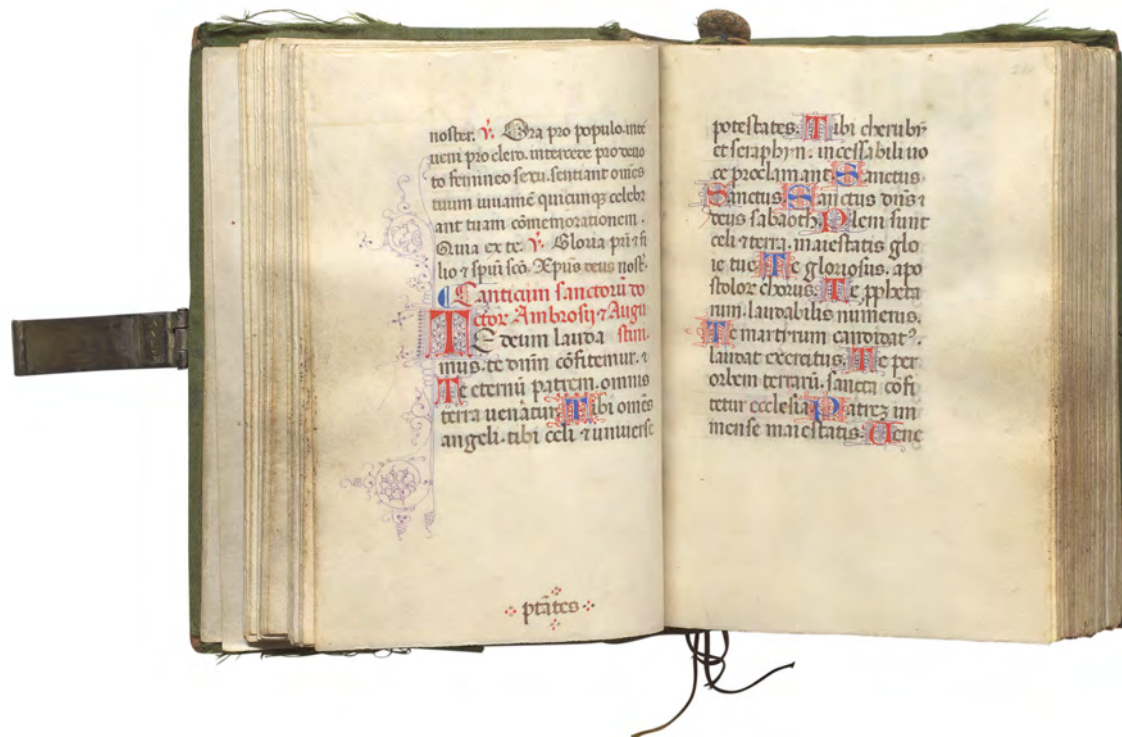 noster. ℣. Ora pro populo. inte
ueni pro clero. intercede pro deuo
to femineo sexu. sentiant om̄es
tuum iuuamē quicunq; celebr
ant tuam cōmemorationem.
Quia ex te. ℣. Gloria pr̄i ⁊ fi
lio ⁊ spūi scō. Xp̄us deus nost̄.
¶ Canticum sanctorū do
ctor Ambrosij ⁊ Augu
stini.
TE deum lauda
mus. te dn̄m cōfitemur. ⁊
Te eternū patrem. omnis
terra ueneratur. Tibi om̄es
angeli. tibi celi ⁊ uniuerse
ptātes
potestates. Tibi cherubyn
et seraphyn. incessabili uo
ce proclamant. Sanctus.
Sanctus. Sanctus dn̄s ⁊
deus sabaoth. Pleni sunt
celi ⁊ terra. maiestatis glo
rie tue. Te gloriosus. apo
stolor chorus. Te ꝓpheta
rum. laudabilis numerus.
Te martirum candidatꝰ.
laudat exercitus. Te per
orbem terrarū. sancta cōfi
tetur ecclesia. Patrez im
mense maiestatis. Uene